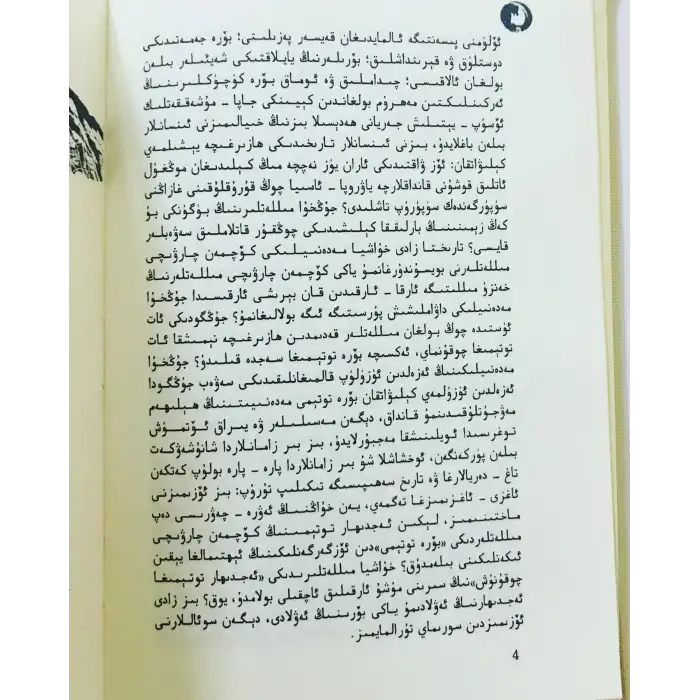 ئۆلۈمنى پىسەنتىگە ئالمايدىغان قەيسەر پەزىلىتى؛ بۆرە جەمەتىدىكى
دوستلۇق ۋە قېرىنداشلىق؛ بۆرىلەرنىڭ يايلاقتىكى شەيئىلەر بىلەن
بولغان ئالاقىسى؛ چىداملىق ۋە ئوماق بۆرە كۈچۈكلىرىنىڭ
ئەركىنلىكتىن مەھرۇم بولغاندىن كېيىنكى جاپا - مۇشەققەتلىك
ئۆسۈپ - يېتىلىش جەريانى ھەدېسىلا بىزنىڭ خىيالىمىزنى ئىنسانلار
بىلەن باغلايدۇ، بىزنى ئىنسانلار تارىخىدىكى ھازىرغىچە يېشىلمەي
كېلىۋاتقان: ئۆز ۋاقتىدىكى ئاران يۈز نەچچە مىڭ كېلىدىغان موڭغۇل
ئاتلىق قوشۇنى قانداقلارچە ياۋروپا - ئاسىيا چوڭ قۇرۇقلۇقىنى غازاڭنى
سۈپۈرگەندەك سۈپۈرۈپ تاشلىدى؟ جۇڭخۇا مىللەتلىرىنىڭ بۈگۈنكى بۇ
كەڭ زېمىنىنىڭ بارلىققا كېلىشىدىكى چوڭقۇر قاتلاملىق سەۋەبلەر
قايسى؟ تارىختا زادى خۇاشيا مەدەنىيىلىكى كۆچمەن چارۋىچى
مىللەتلەرنى بويسۇندۇرغانمۇ ياكى كۆچمەن چارۋىچى مىللەتلەرنىڭ
خەنزۇ مىللىتىگە ئارقا - ئارقىدىن قان بېرىشى ئارقىسىدا جۇڭخۇا
مەدەنىيلىكى داۋاملىشىش پۇرسىتىگە ئىگە بولالىغانمۇ؟ جۇڭگودىكى ئات
ئۈستىدە چوڭ بولغان مىللەتلەر قەدىمدىن ھازىرغىچە نېمىشقا ئات
توتېمىغا چوقۇنماي، ئەكسىچە بۆرە توتېمىغا سەجدە قىلىدۇ؟ جۇڭخۇا
مەدەنىيلىكىنىڭ ئەزەلدىن ئۈزۈلۈپ قالمىغانلىقىدىكى سەۋەب جۇڭگودا
ئەزەلدىن ئۈزۈلمەي كېلىۋاتقان بۆرە توتېمى مەدەنىيىتىنىڭ ھېلىھەم
مەۋجۇتلۇقىدىنمۇ قانداق، دېگەن مەسىلىلەر ۋە يىراق ئۆتمۈش
توغرىسىدا ئويلىنىشقا مەجبۇرلايدۇ، بىز بىر زامانلاردا شانۇشەۋكەت
بىلەن پۈركەنگەن، ئوخشاشلا شۇ بىر زامانلاردا پارە - پارە بولۇپ كەتكەن
تاغ - دەريالارغا ۋە تارىخ سەھىپىسىگە تىكىلىپ تۇرۇپ: بىز ئۆزىمىزنى
ئاغزى - ئاغزىمىزغا تەگمەي، يەن خۇاڭنىڭ ئەۋرە - چەۋرىسى دەپ
ماختىنىمىز، لېكىن ئەجدىھار توتېمىنىڭ كۆچمەن چارۋىچى
مىللەتلەردىكى «بۆرە توتېمى»دىن ئۆزگەرگەنلىكىنىڭ ئېھتىمالغا يېقىن
ئىكەنلىكىنى بىلەمدۇق؟ خۇاشيا مىللەتلىرىدىكى «ئەجدىھار توتېمىغا
چوقۇنۇش»نىڭ سىرىنى مۇشۇ ئارقىلىق ئاچقىلى بولامدۇ، يوق؟ بىز زادى
ئەجدىھارنىڭ ئەۋلادىمۇ ياكى بۆرىنىڭ ئەۋلادى، دېگەن سوئاللارنى
ئۆزىمىزدىن سورىماي تۇرالمايمىز.
4